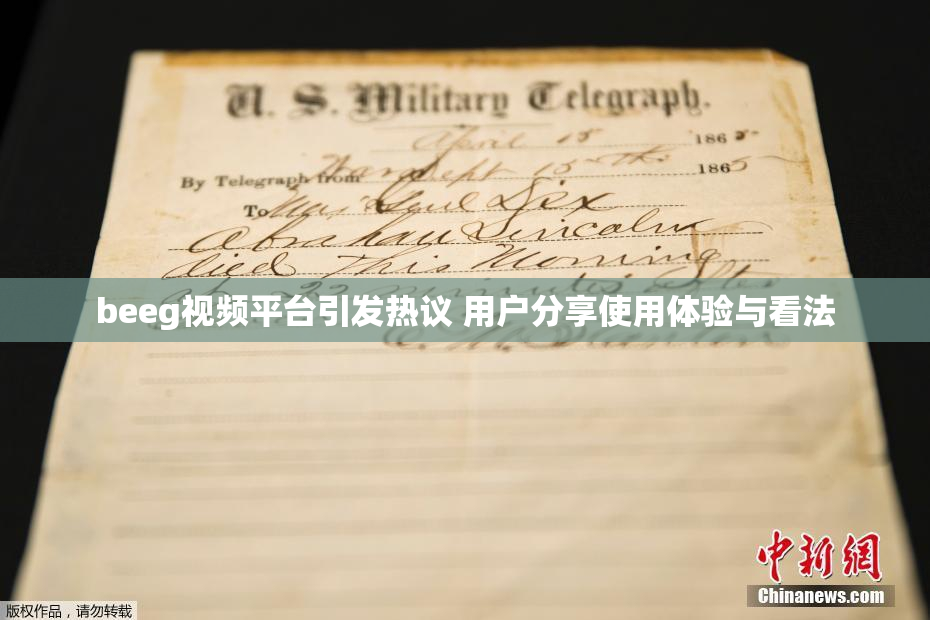 U. S. Military Telegraph.
April 15 1865
By Telegraph from War Dept 15th 1865
To Maj Genl Dix
Abraham Lincoln
died This Morning
at 22 minutes after
beeg视频平台引发热议 用户分享使用体验与看法
E. M. Stanton
中新网
Chinanews.com
版权作品，请勿转载